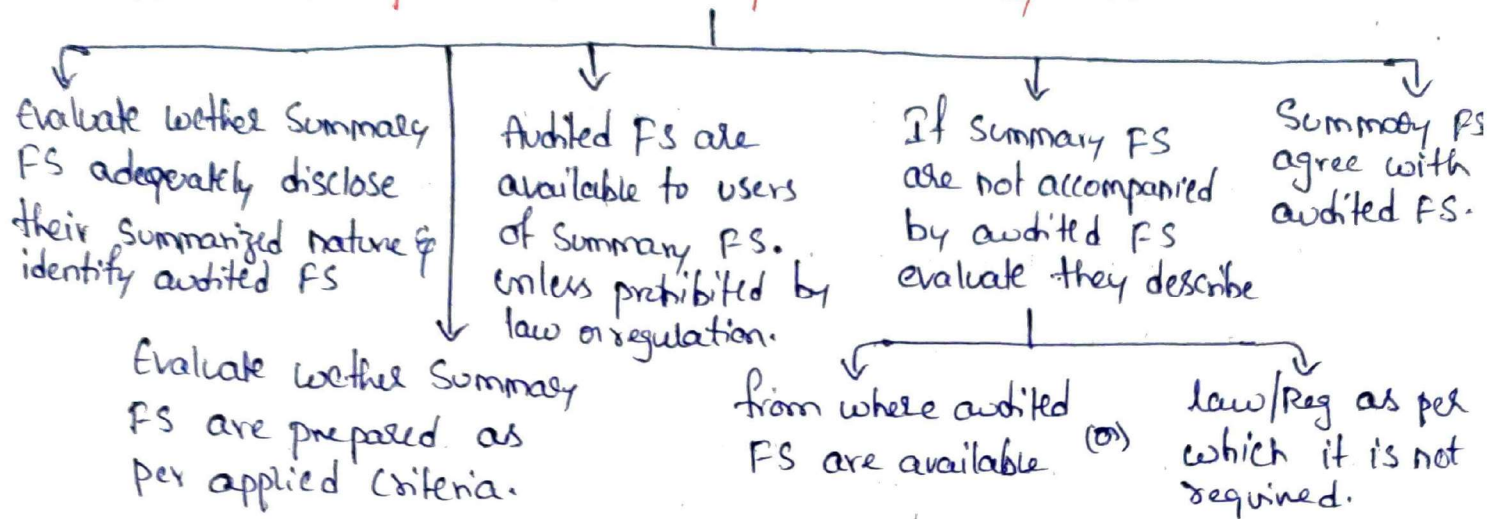 Evaluate wether Summary
FS adeqerately disclose
their summarized nature &
identify audited FS
Evaluate wether Summary
FS are prepared as
per applied Criteria.
Audited FS are
available to users
of Summary FS.
unless prohibited by
law or regulation.
If Summary FS
are not accompanied
by audited FS
evaluate they describe
from where audited
FS are available
(or)
law/Reg as per
which it is not
required.
Summary FS
agree with
audited FS.